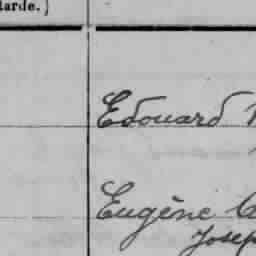 tarde.)
Edouard
Eugène
Josep